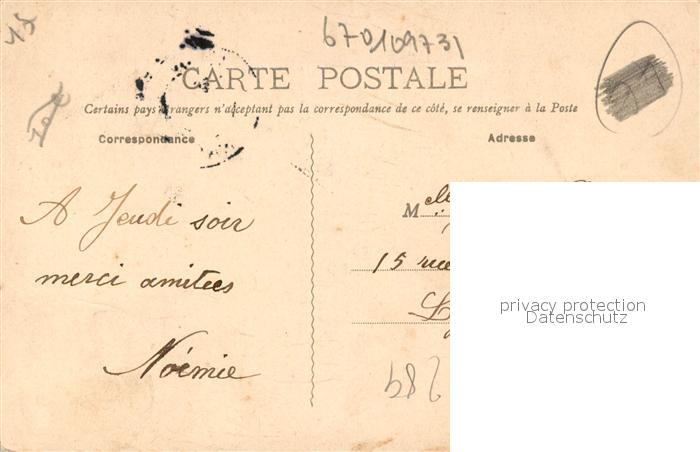 15
670109731
CARTE POSTALE
Certains pays étrangers n'acceptant pas la correspondance de ce côté, se renseigner à la Poste
Correspondance
Adresse
A Jeudi soir
merci amitées
Noémie
Melle
15 rue
privacy protection
Datenschutz